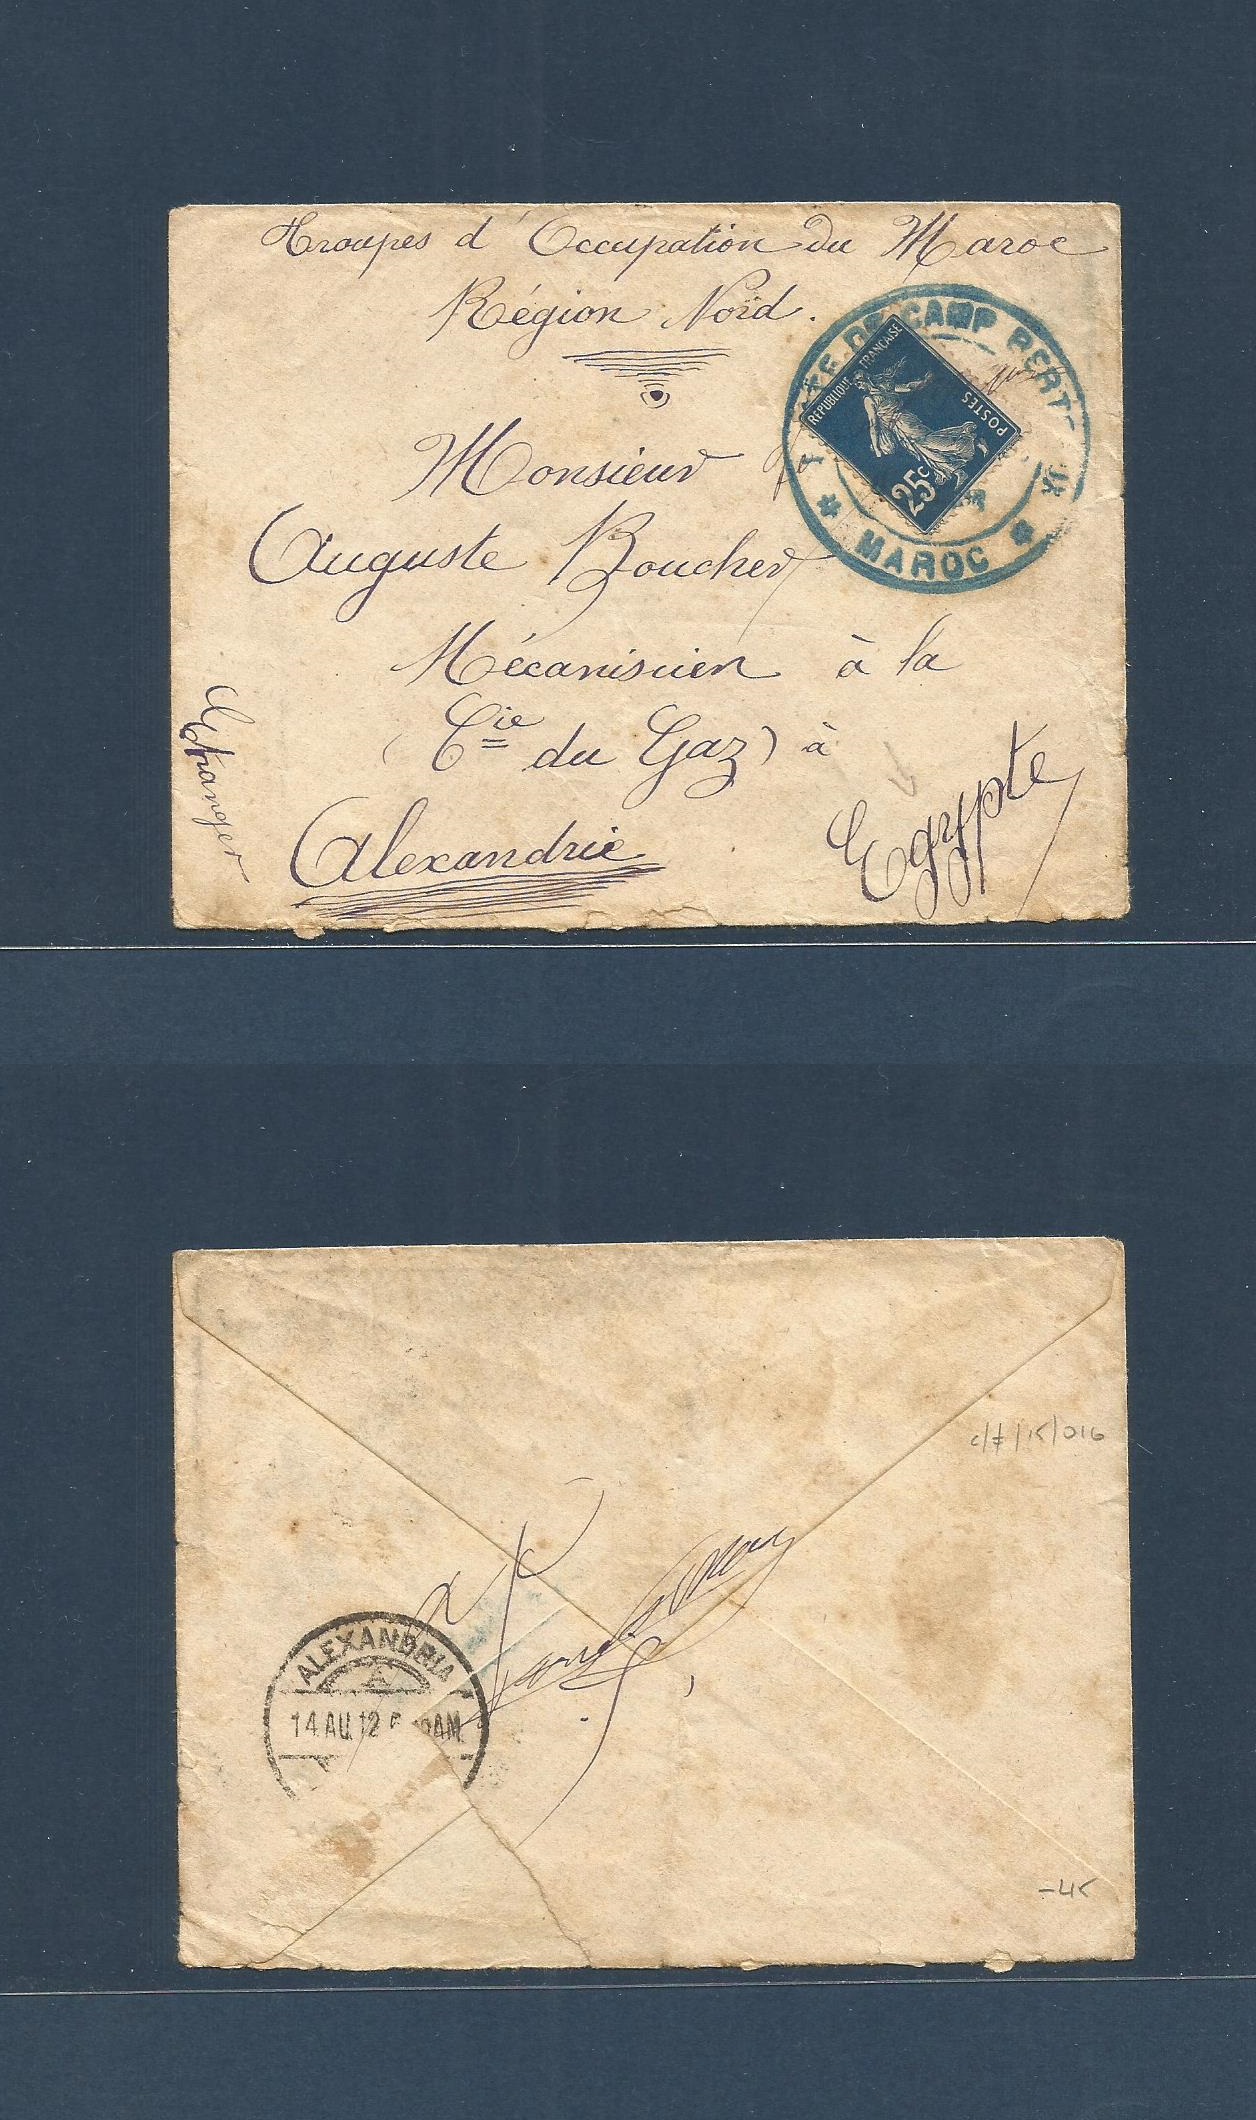 Troupes d'Occupation du Maroc
Région Nord.
DE CAMP BERT
MAROC
REPUBLIQUE FRANÇAISE
POSTES
25c
Monsieur
Auguste Boucher
Mécanisien à la
(Cie du Gaz) à
Alexandrie
Egypte
Etranger
c/≠/15/016
ALEXANDRIA
A
14.AU.12 AM